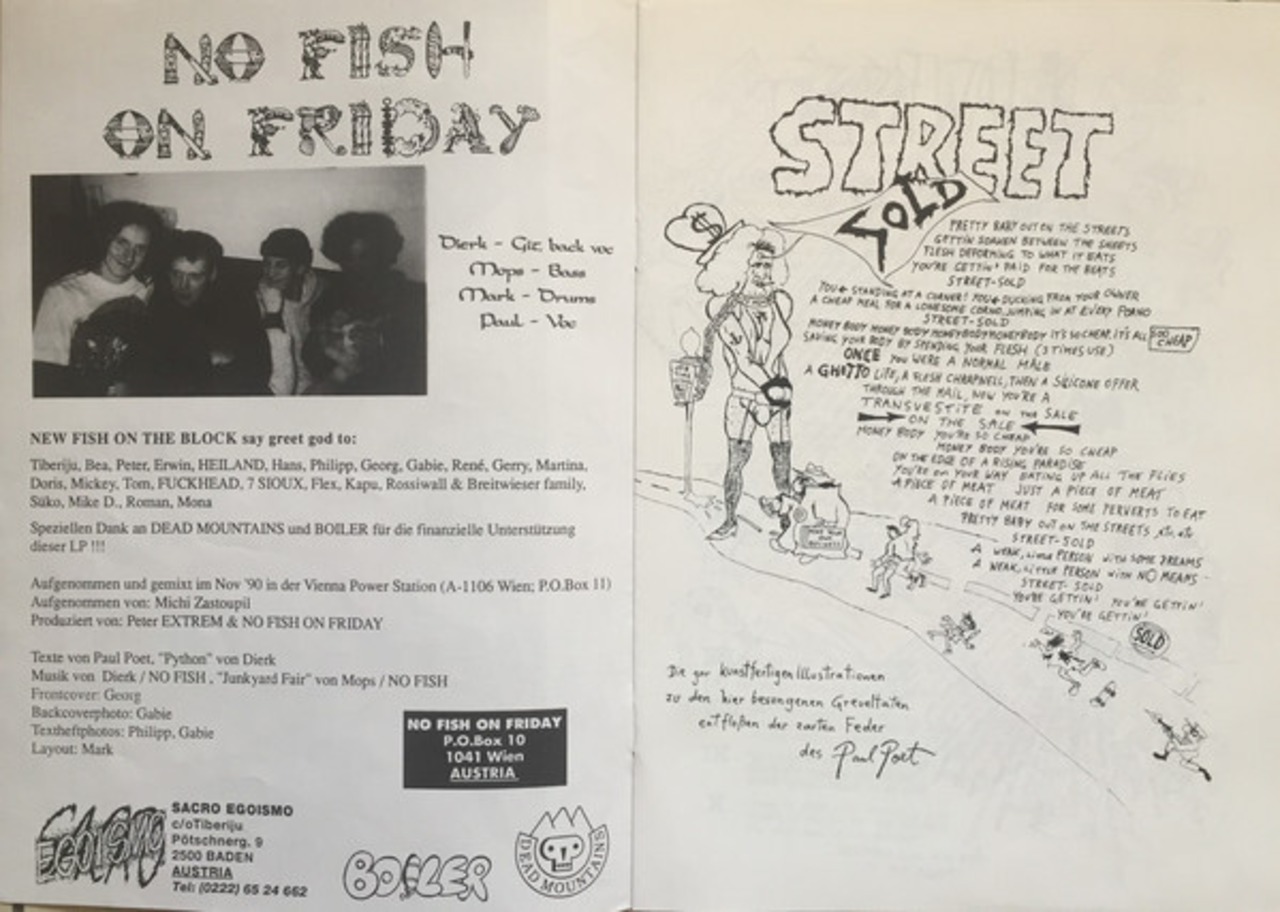 NO FISH
ON FRIDAY
Dierk - Git, back voc
Mops - Bass
Mark - Drums
Paul - Voc
NEW FISH ON THE BLOCK say greet god to:
Tiberiju, Bea, Peter, Erwin, HEILAND, Hans, Philipp, Georg, Gabie, René, Gerry, Martina,
Doris, Mickey, Tom, FUCKHEAD, 7 SIOUX, Flex, Kapu, Rossiwall & Breitwieser family,
Süko, Mike D., Roman, Mona
Speziellen Dank an DEAD MOUNTAINS und BOILER für die finanzielle Unterstützung
dieser LP !!!
Aufgenommen und gemixt im Nov '90 in der Vienna Power Station (A-1106 Wien; P.O.Box 11)
Aufgenommen von: Michi Zastoupil
Produziert von: Peter EXTREM & NO FISH ON FRIDAY
Texte von Paul Poet, "Python" von Dierk
Musik von Dierk / NO FISH , "Junkyard Fair" von Mops / NO FISH
Frontcover: Georg
Backcoverphoto: Gabie
Textheftphotos: Philipp, Gabie
Layout: Mark
NO FISH ON FRIDAY
P.O.Box 10
1041 Wien
AUSTRIA
EGOISMO
SACRO EGOISMO
c/oTiberiju
Pötschnerg. 9
2500 BADEN
AUSTRIA
Tel: (0222) 65 24 662
BOILER
DEAD MOUNTAINS
STREET
SOLD
$
PRETTY BABY OUT ON THE STREETS
GETTIN' BETWEEN THE SHEETS
FLESH DEFORMING TO WHAT IT EATS
YOU'RE GETTIN' PAID FOR THE BEATS
STREET-SOLD
STANDING AT A CORNER! DUCKING FROM YOUR OWNER
A CHEAP MEAL FOR A LONESOME JUMPING IN AT EVERY PORNO
STREET-SOLD
MONEY BODY MONEY BODY MONEYBODYMONEYBODY IT'S SO CHEAP, IT'S ALL SOO CHEAP
SAVING YOUR BODY BY SPENDING YOUR FLESH (3 TIMES USE)
ONCE YOU WERE A NORMAL MALE
A GHETTO LIFE, A FLESH THEN A SILICONE OFFER
THROUGH THE MAIL, NOW YOU'RE A
TRANSVESTITE ON THE SALE
ON THE SALE
MONEY BODY YOU'RE SO CHEAP
MONEY BODY YOU'RE SO CHEAP
ON THE EDGE OF A RISING PARADISE
YOU'RE ON YOUR WAY EATING UP ALL THE FLIES
A PIECE OF MEAT JUST A PIECE OF MEAT
A PIECE OF MEAT FOR SOME PERVERTS TO EAT
PRETTY BABY OUT ON THE STREETS etc. etc.
STREET-SOLD
A WEAK, little PERSON with SOME DREAMS
A WEAK, little PERSON with NO MEANS -
STREET-SOLD
YOU'RE GETTIN' YOU'RE GETTIN'
YOU'RE GETTIN'
SOLD
Die gar kunstfertigen Illustrationen
zu den hier besungenen Greueltaten
entfloßen der zarten Feder
des Paul Poet